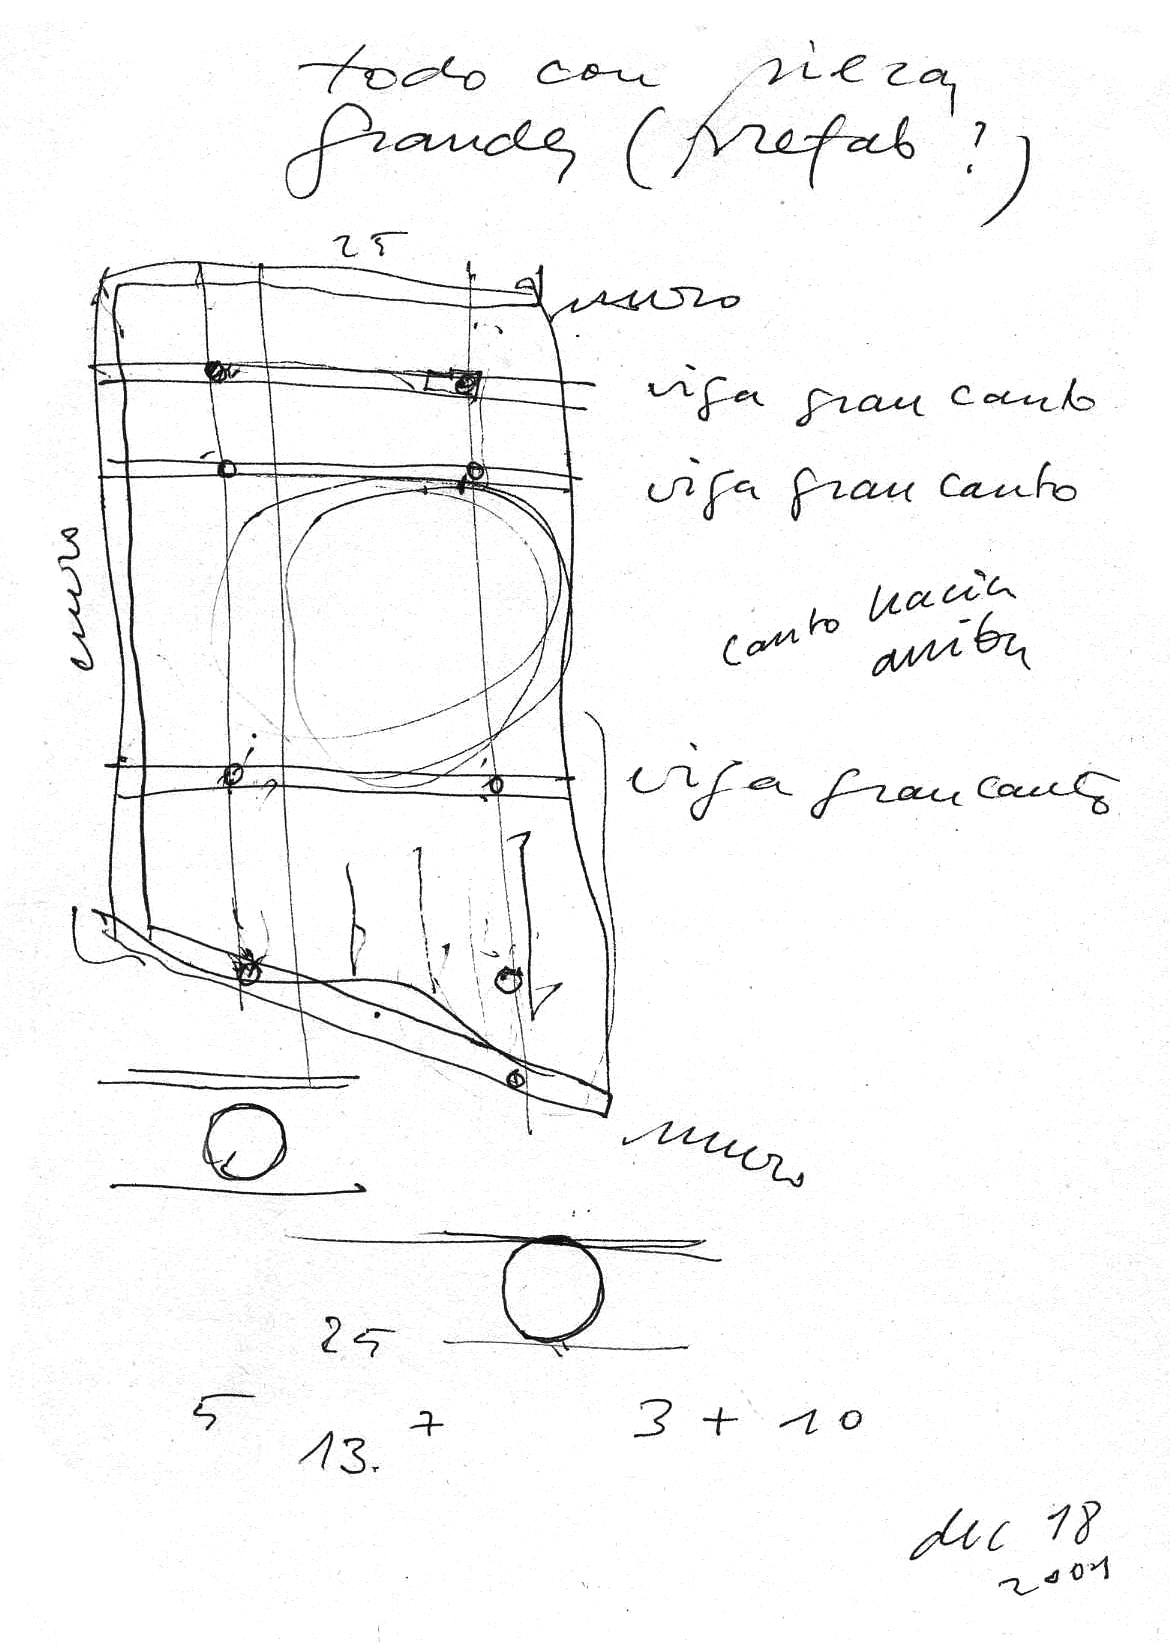 todo con pieza,
grande, (prefab?)
25
muro
viga gran canto
viga gran canto
muro
canto hacia
arriba
viga gran canto
muro
25
5
7
3 + 10
13.
dec 18
2001